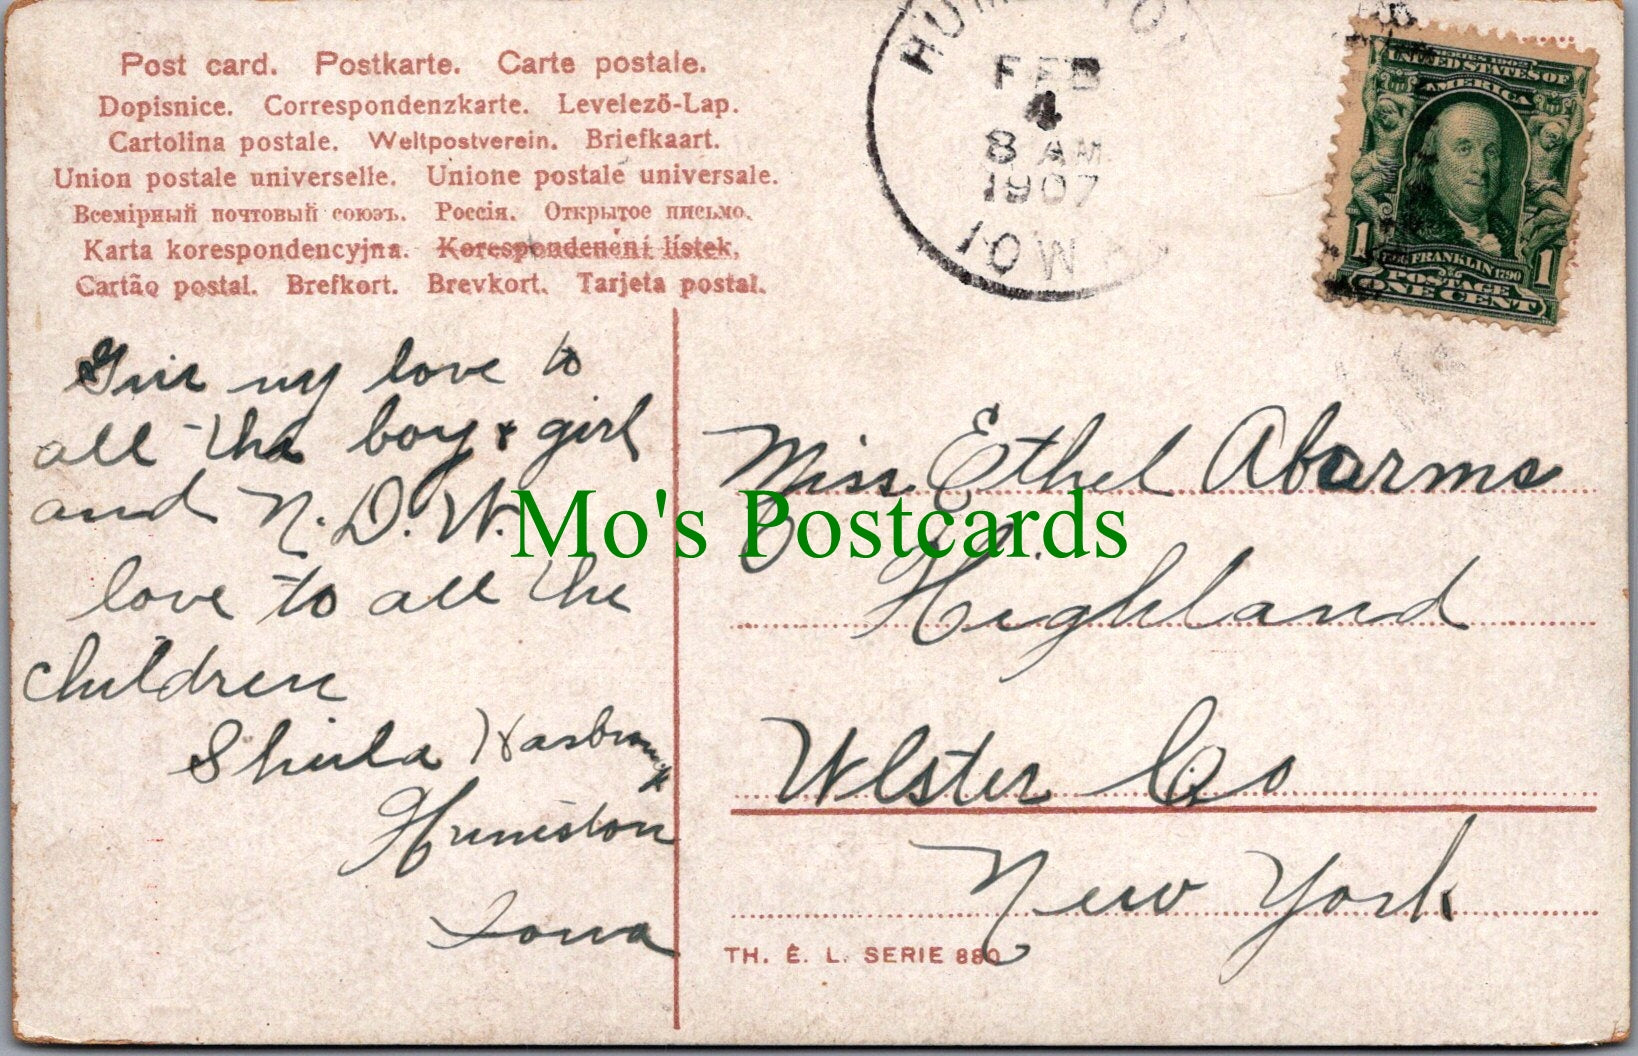 Post card. Postkarte. Carte postale.
Dopisnice. Correspondenzkarte. Levelező-Lap.
Cartolina postale. Weltpostverein. Briefkaart.
Union postale universelle. Unione postale universale.
Всемірный почтовый союзъ. Россія. Открытое письмо.
Karta korespondencyjna. Korespondenční lístek,
Cartão postal. Brefkort. Brevkort. Tarjeta postal.
FEB
4
8 AM
1907
IOWA
SERIES 1902
UNITED STATES OF
AMERICA
FRANKLIN 1790
POSTAGE
1 ONE CENT 1
Give my love to
all the boy & girl
and N.D.W.
love to all the
children
Hasbrouck
Humiston
Iowa
Miss Ethel Abarms
Highland
Ulster Co
New York
TH. E. L. SERIE 880
Mo's Postcards